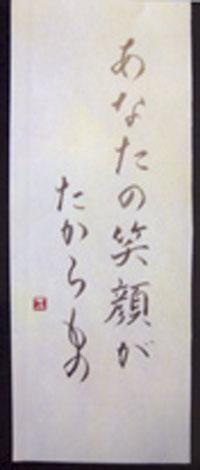 あなたの笑顔が
たからもの